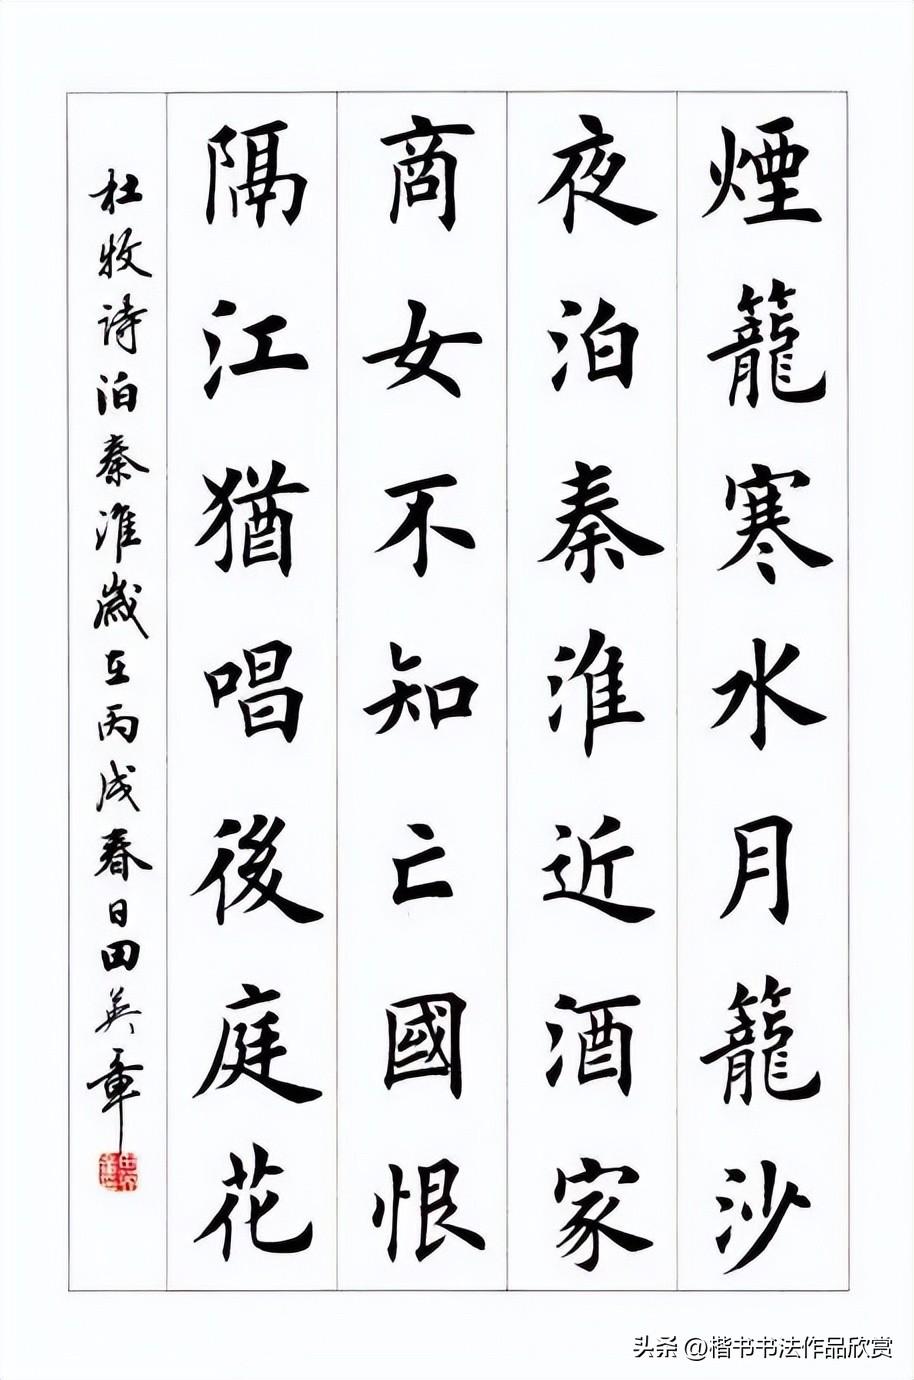 煙籠寒水月籠沙
夜泊秦淮近酒家
商女不知亡國恨
隔江猶唱後庭花
杜牧诗泊秦淮歲在丙戌春日田英章
头条 @楷书书法作品欣赏